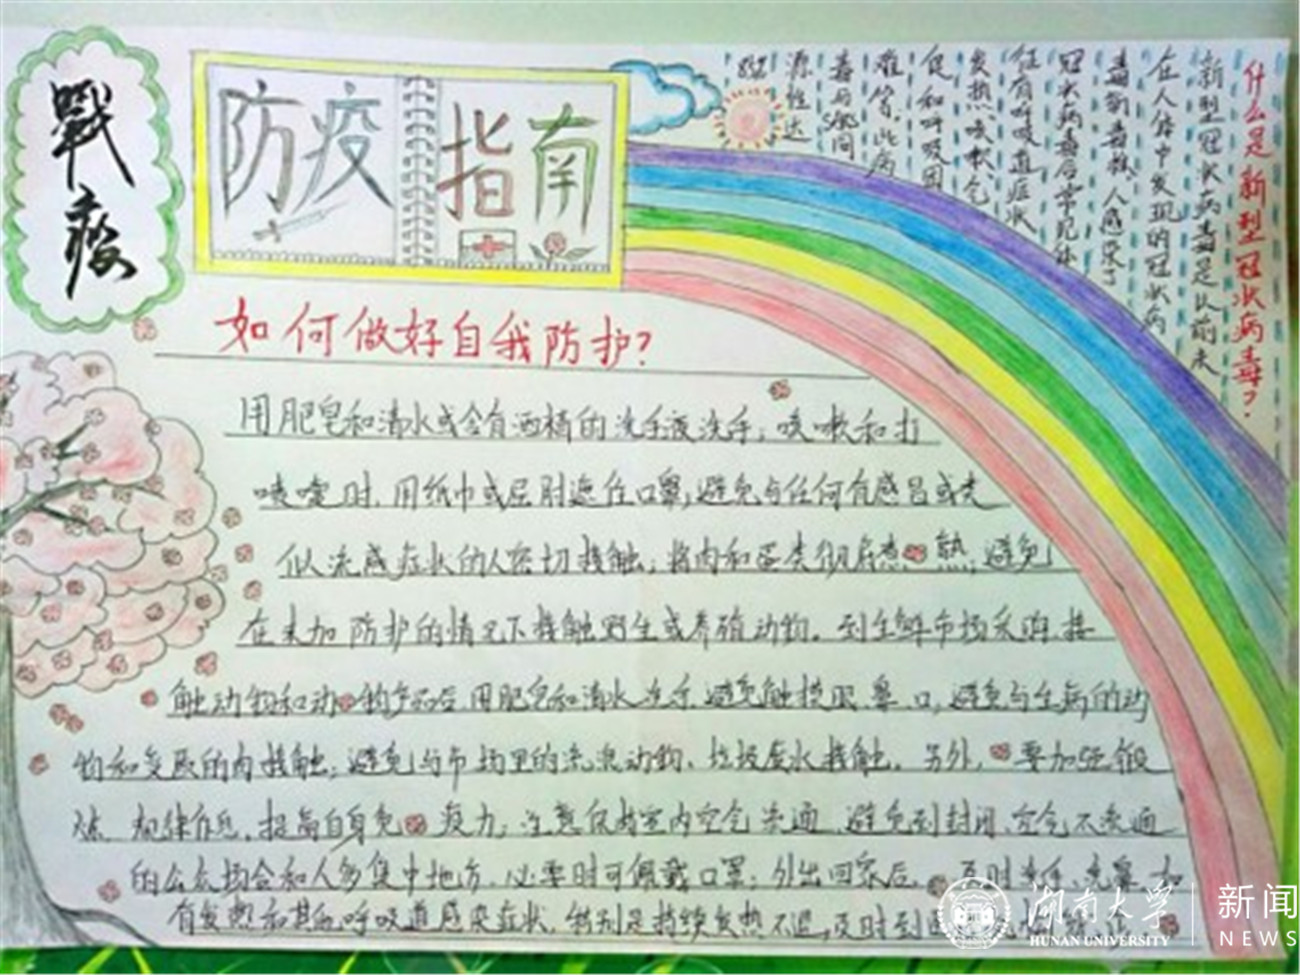 戰疫
防疫指南
什么是新型冠状病毒?
新型冠状病毒是以前未
在人体中发现的冠状病
毒新毒株,人感染了
冠状病毒后常见体
征有呼吸道症状
发热、咳嗽、气
促和呼吸困
难等。此病
毒与SARS同
源性达
85%
如何做好自我防护?
用肥皂和清水或含有酒精的洗手液洗手;咳嗽和打
喷嚏时,用纸巾或屈肘遮住口罩,避免与任何有感冒或类
似流感症状的人密切接触;将肉和蛋类彻底煮熟,避免
在未加防护的情况下接触野生或养殖动物。到生鲜市场采购,接
触动物和动物产品后,用肥皂和清水洗手,避免触摸眼、鼻、口,避免与生病的动
物和变质的肉接触;避免与市场里的流浪动物、垃圾废水接触。另外,要加强锻
炼,规律作息,提高自身免疫力;注意保持室内空气流通,避免到封闭、空气不流通
的公众场合和人多集中地方,必要时可佩戴口罩;外出回家后,及时洗手、洗鼻,如
有发热和其他呼吸道感染症状,特别是持续发热不退,及时到
湖南大学
HUNAN UNIVERSITY
新闻
NEWS